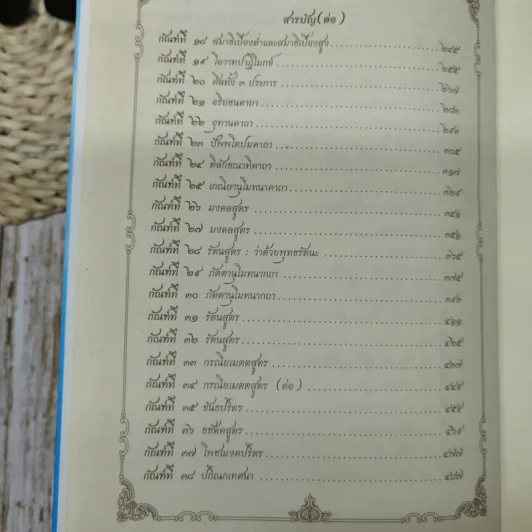 สารบัญ(ต่อ)
กัณฑ์ที่ ๑๘ สมาธิเบื้องต่ำและสมาธิเบื้องสูง ๒๔๙
กัณฑ์ที่ ๑๙ โอวาทปาฏิโมกข์ ๒๕๕
กัณฑ์ที่ ๒๐ ศีลทั้ง ๓ ประการ ๒๖๗
กัณฑ์ที่ ๒๑ อริยธนคาถา ๒๘๓
กัณฑ์ที่ ๒๒ อุทานคาถา
กัณฑ์ที่ ๒๓ ปัพพโตปมคาถา ๓๐๕
กัณฑ์ที่ ๒๔ ติลักขณาทิคาถา ๓๑๗
กัณฑ์ที่ ๒๕ เกณิยานุโมทนาคาถา ๓๒๙
กัณฑ์ที่ ๒๖ มงคลสูตร
กัณฑ์ที่ ๒๗ มงคลสูตร ๓๕๑
กัณฑ์ที่ ๒๘ รัตนสูตร : ว่าด้วยพุทธรัตนะ ๓๖๕
กัณฑ์ที่ ๒๙ ภัตตานุโมทนากถา ๓๗๕
กัณฑ์ที่ ๓๐ ภัตตานุโมทนากถา ๓๙๓
กัณฑ์ที่ ๓๑ รัตนสูตร ๔๑๑
กัณฑ์ที่ ๓๒ รัตนสูตร ๔๒๕
กัณฑ์ที่ ๓๓ กรณียเมตตสูตร ๔๓๗
กัณฑ์ที่ ๓๔ กรณียเมตตสูตร (ต่อ) ๔๔๙
กัณฑ์ที่ ๓๕ ขันธปริตร ๔๕๙
กัณฑ์ที่ ๓๖ ธชัคคสูตร ๔๖๙
กัณฑ์ที่ ๓๗ โพชฌงคปริตร ๔๗๗
กัณฑ์ที่ ๓๘ ปกิณกเทศนา ๔๘๗